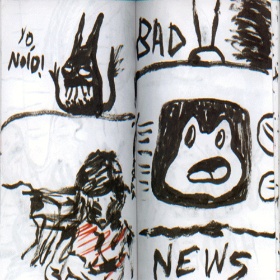 YO,
NOID!
BAD
NEWS